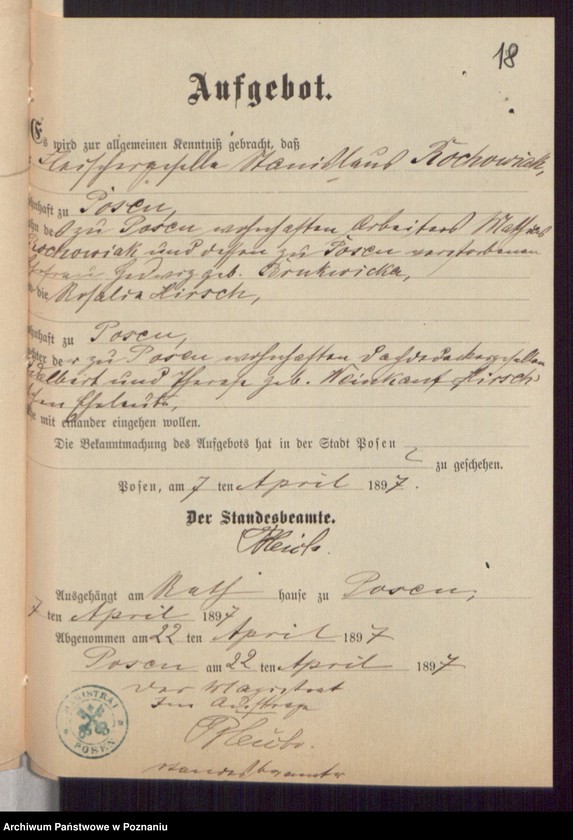 18
Aufgebot.
Es wird zur allgemeinen Kenntniß gebracht, daß
Fleischergeselle Stanislaus Kochowiak,
wohnhaft zu Posen,
zu Posen wohnhaften Arbeiters
Kochowiak und dessen zu Posen verstorbenen
Ehefrau Hedwig geb.
die Rosalia Hirsch,
wohnhaft zu Posen,
der zu Posen wohnhaften Dachdeckergesellen
und Therese geb. Weinkauf Hirsch
schen Eheleute,
Ehe mit einander eingehen wollen.
Die Bekanntmachung des Aufgebots hat in der Stadt Posen
zu geschehen.
Posen, am 7 ten April 1897.
Der Standesbeamte.
Ausgehängt am Rath hause zu Posen,
7 ten April 1897
Abgenommen am 22 ten April 1897
Posen am 22 ten April 1897
Der Magistrat
Im Auftrage
MAGISTRAT POSEN
Standesbeamter
Archiwum Państwowe w Poznaniu